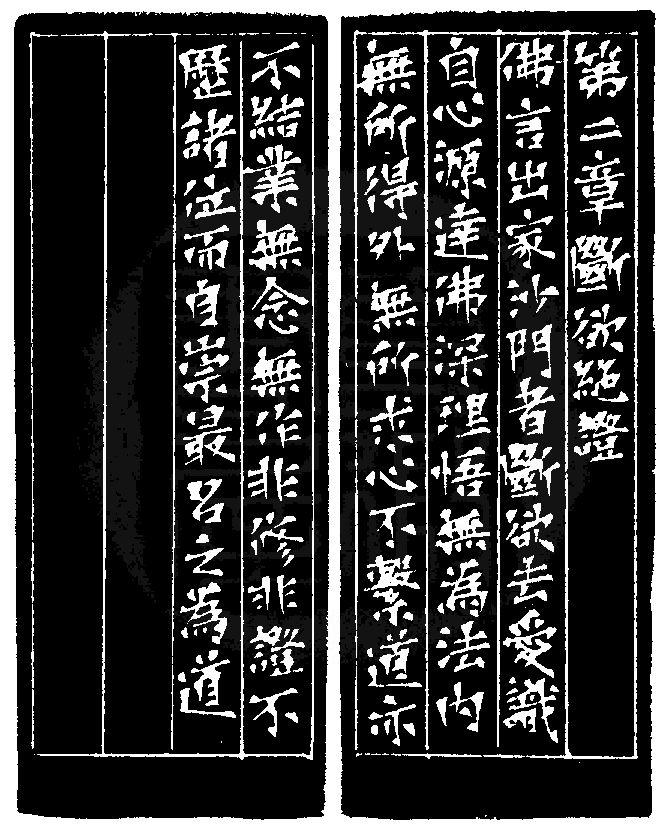 第二章斷欲絕證
佛言出家沙門者斷欲去愛識
自心源達佛深理悟無為法內
無所得外無所求心不繫道亦
不結業無念無作非修非證不
歷諸位而自崇最名之為道